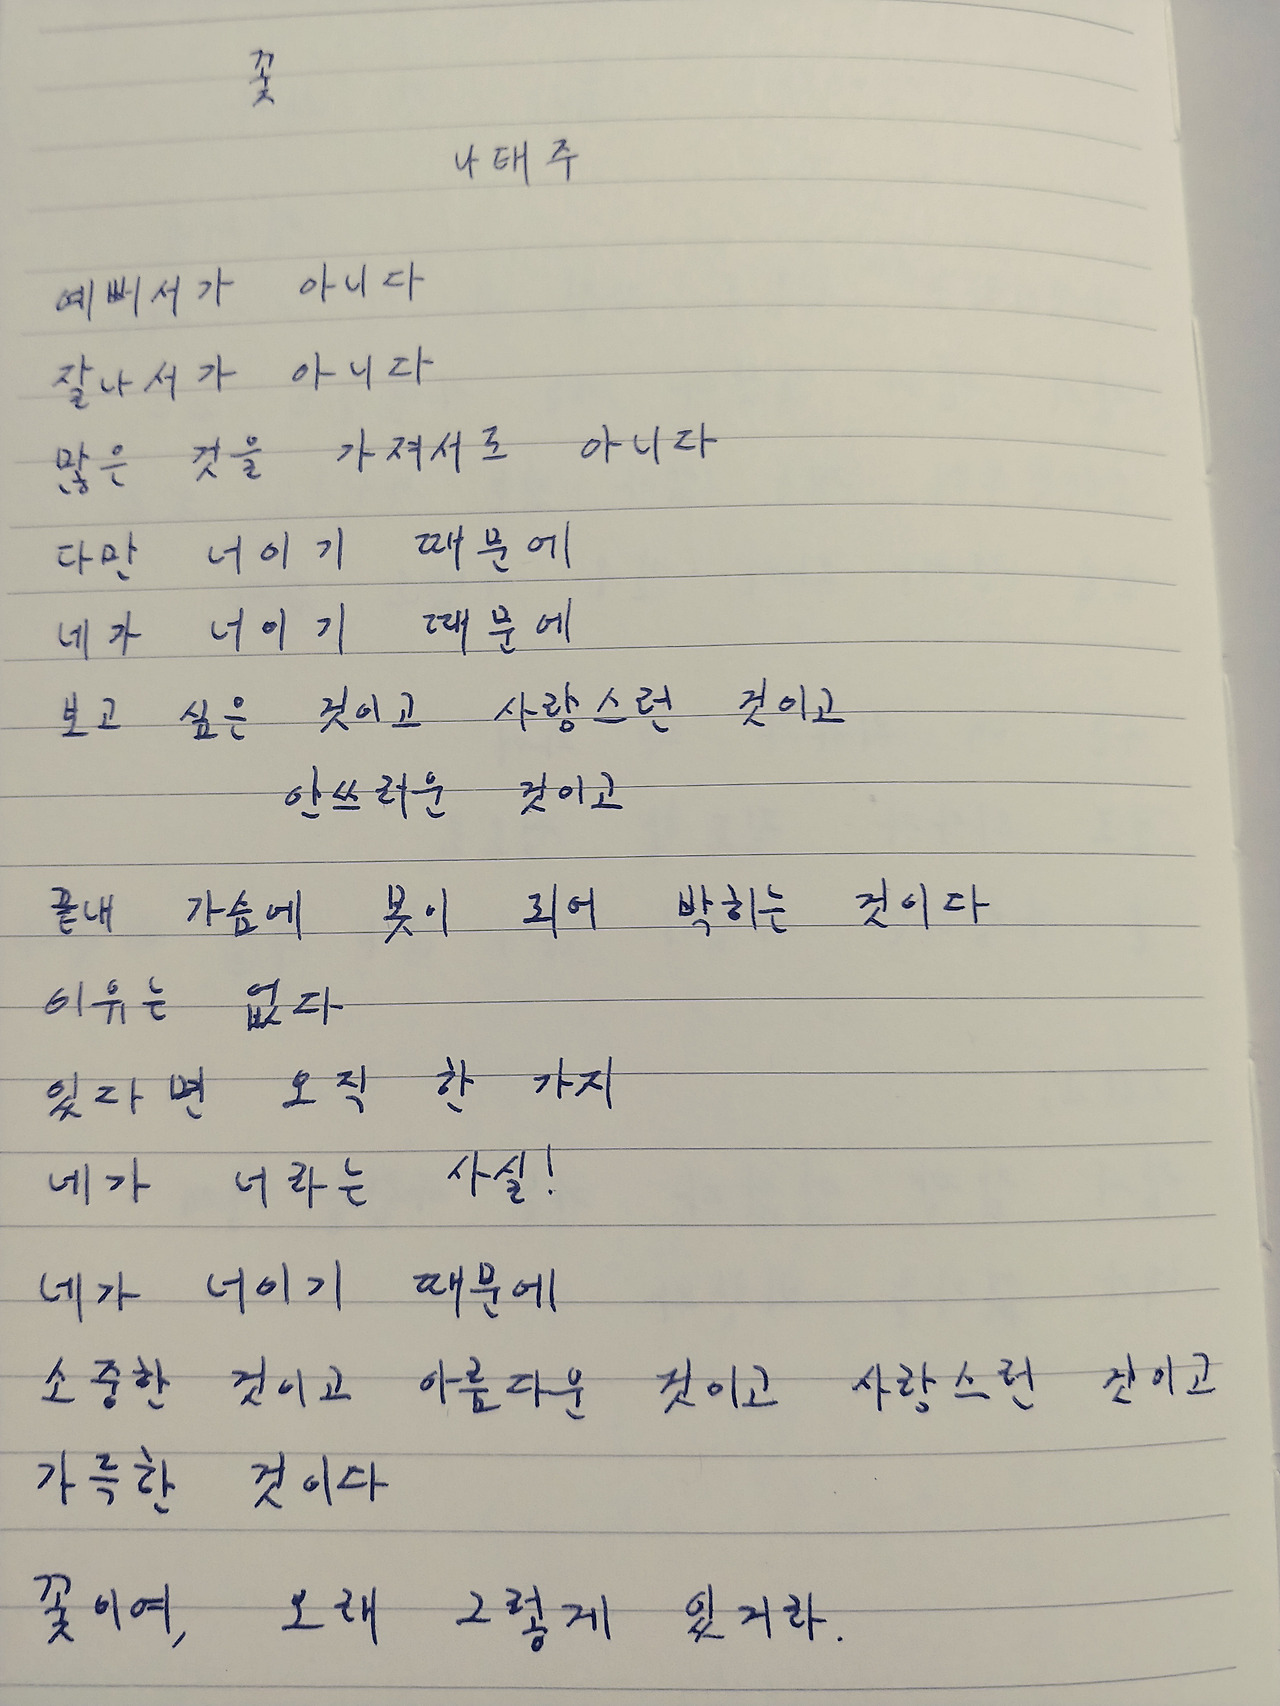 꽃
나태주
예뻐서가 아니다
잘나서가 아니다
많은 것을 가져서도 아니다
다만 너이기 때문에
네가 너이기 때문에
보고 싶은 것이고 사랑스런 것이고
안쓰러운 것이고
끝내 가슴에 못이 되어 박히는 것이다
이유는 없다
있다면 오직 한 가지
네가 너라는 사실!
네가 너이기 때문에
소중한 것이고 아름다운 것이고 사랑스런 것이고
가득한 것이다
꽃이여, 오래 그렇게 있거라.